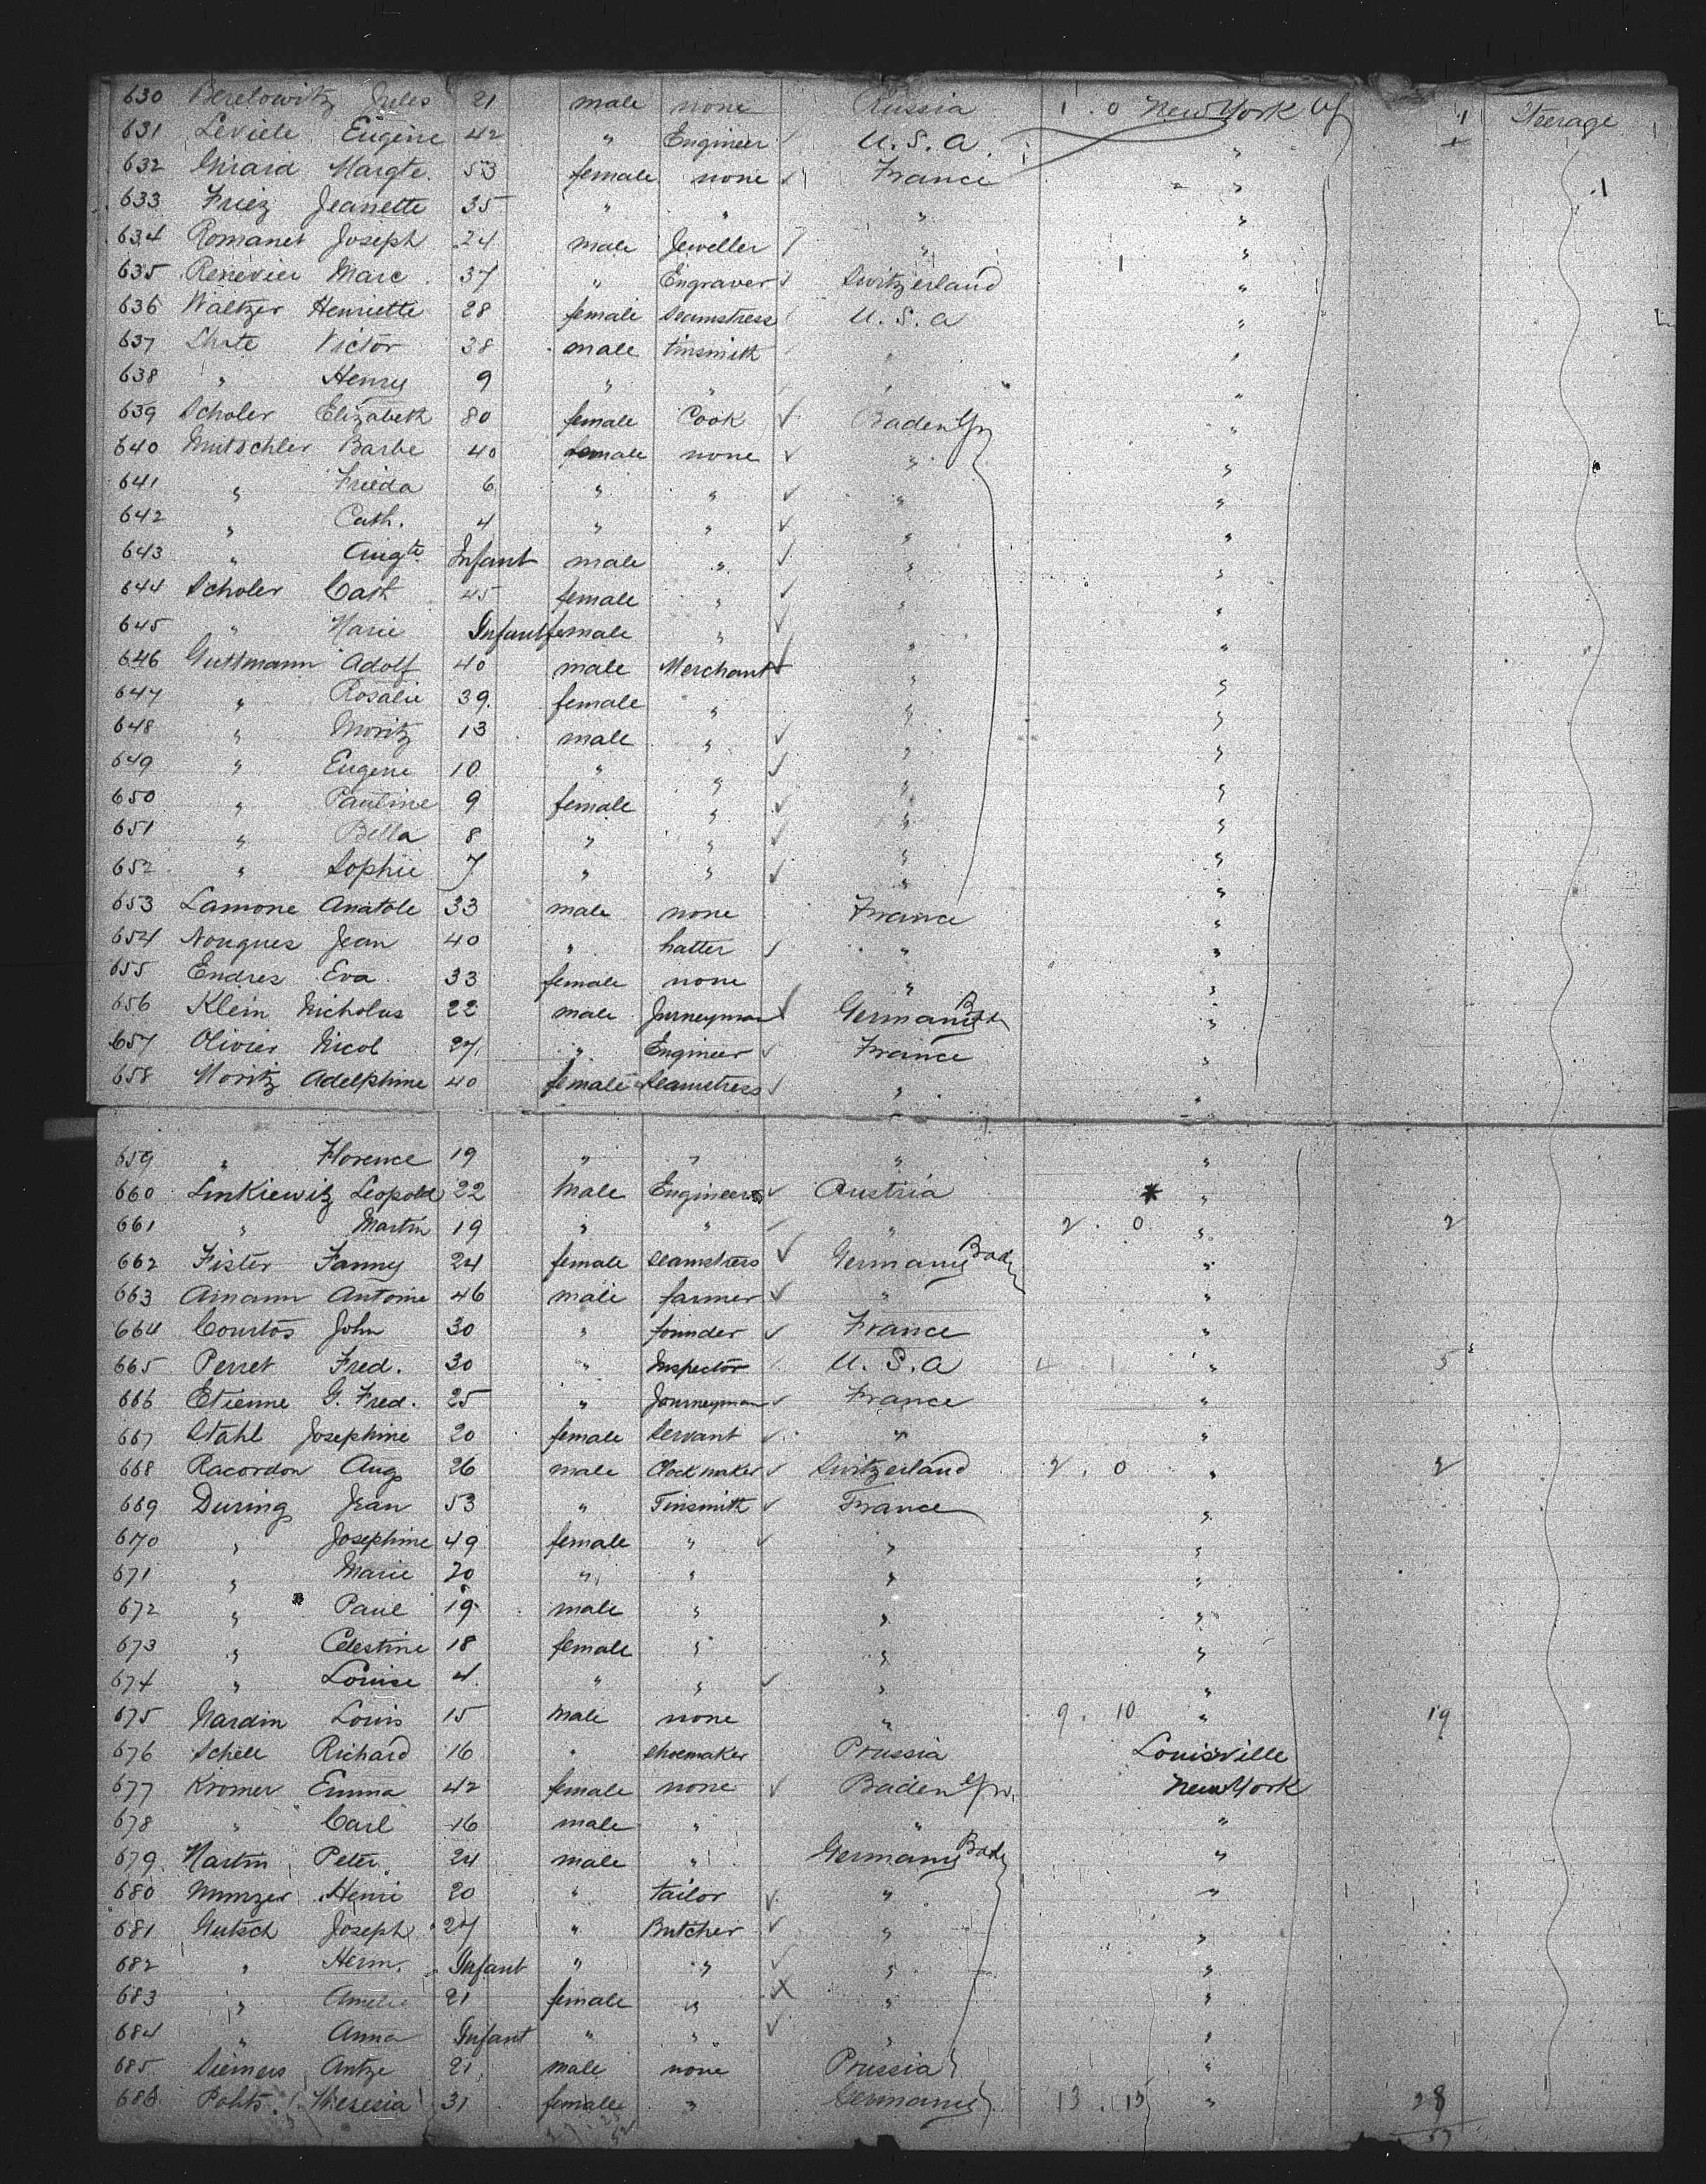 630 Berelowitz Jules 21 male none Russia 1 . 0 New York 1 Steerage
631 Leviele Eugène 42 " Engineer U. S. A. "
632 Girard Margte. 53 female none France " 1
633 Friez Jeanette 35 " " " "
634 Romanet Joseph 24 male Jeweller " "
635 Renevier Marc 37 " Engraver Switzerland 1 "
636 Waltzer Henriette 28 female Seamstress U. S. A "
637 Victor 38 male tinsmith " "
638 " Henry 9 " " " "
639 Scholer Elizabeth 80 female Cook Baden "
640 Mutschler Barbe 40 female none " "
641 " Frieda 6 " " " "
642 " Cath. 4 " " " "
643 " Augte Infant male " " "
644 Scholer Cath 45 female " " "
645 " Marie Infant female " " "
646 Guttmann Adolf 40 male Merchant " "
647 " Rosalie 39 female " " "
648 " Moritz 13 male " " "
649 " Eugene 10 " " " "
650 " Pauline 9 female " " "
651 " Bella 8 " " " "
652 " Sophie 7 " " " "
653 Lamone Anatole 33 male none France "
654 Nougues Jean 40 " hatter " "
655 Endres Eva 33 female none " "
656 Klein Nicholas 22 male Jurneyman Germany "
657 Olivier Nicol 27 " Engineer France "
658 Moritz Adelphine 40 female Seamstress " "
659 " Florence 19 " " " "
660 Linkiewitz Leopold 22 Male Engineers Austria * "
661 " Martin 19 " " " 2 . 0 " 2
662 Fister Fanny 24 female Seamstress Germany Bad "
663 Amann Antoine 46 male farmer " "
664 Courtos John 30 " founder France "
665 Perret Fred. 30 " Inspector U. S. A 4 1 " 5
666 Etienne G. Fred. 25 " Journeyman France "
667 Stahl Josephine 20 female Servant " "
668 Racordon Aug 26 male Clockmaker Switzerland 2 . 0 " 2
669 During Jean 53 " Tinsmith France "
670 " Josephine 49 female " " "
671 " Marie 20 " " " "
672 " Paul 19 male " " "
673 " Celestine 18 female " " "
674 " Louise 4 " " " "
675 Nardin Louis 15 Male none " 9 . 10 " 19
676 Schell Richard 16 " Shoemaker Prussia Louisville
677 Kromer Emma 42 female none Baden New York
678 " Carl 16 male " " "
679 Martin Peter 24 male " Germany Bad "
680 Munzer Henri 20 " tailor " "
681 Gutsch Joseph 27 " Butcher " "
682 " Herm. Infant " " " "
683 " Amelie 21 female " " "
684 " Anna Infant " " " "
685 Siemers Antze 21 male none Prussia "
686 Pohts Theresia 31 female " Germany 13 . 15 " 28